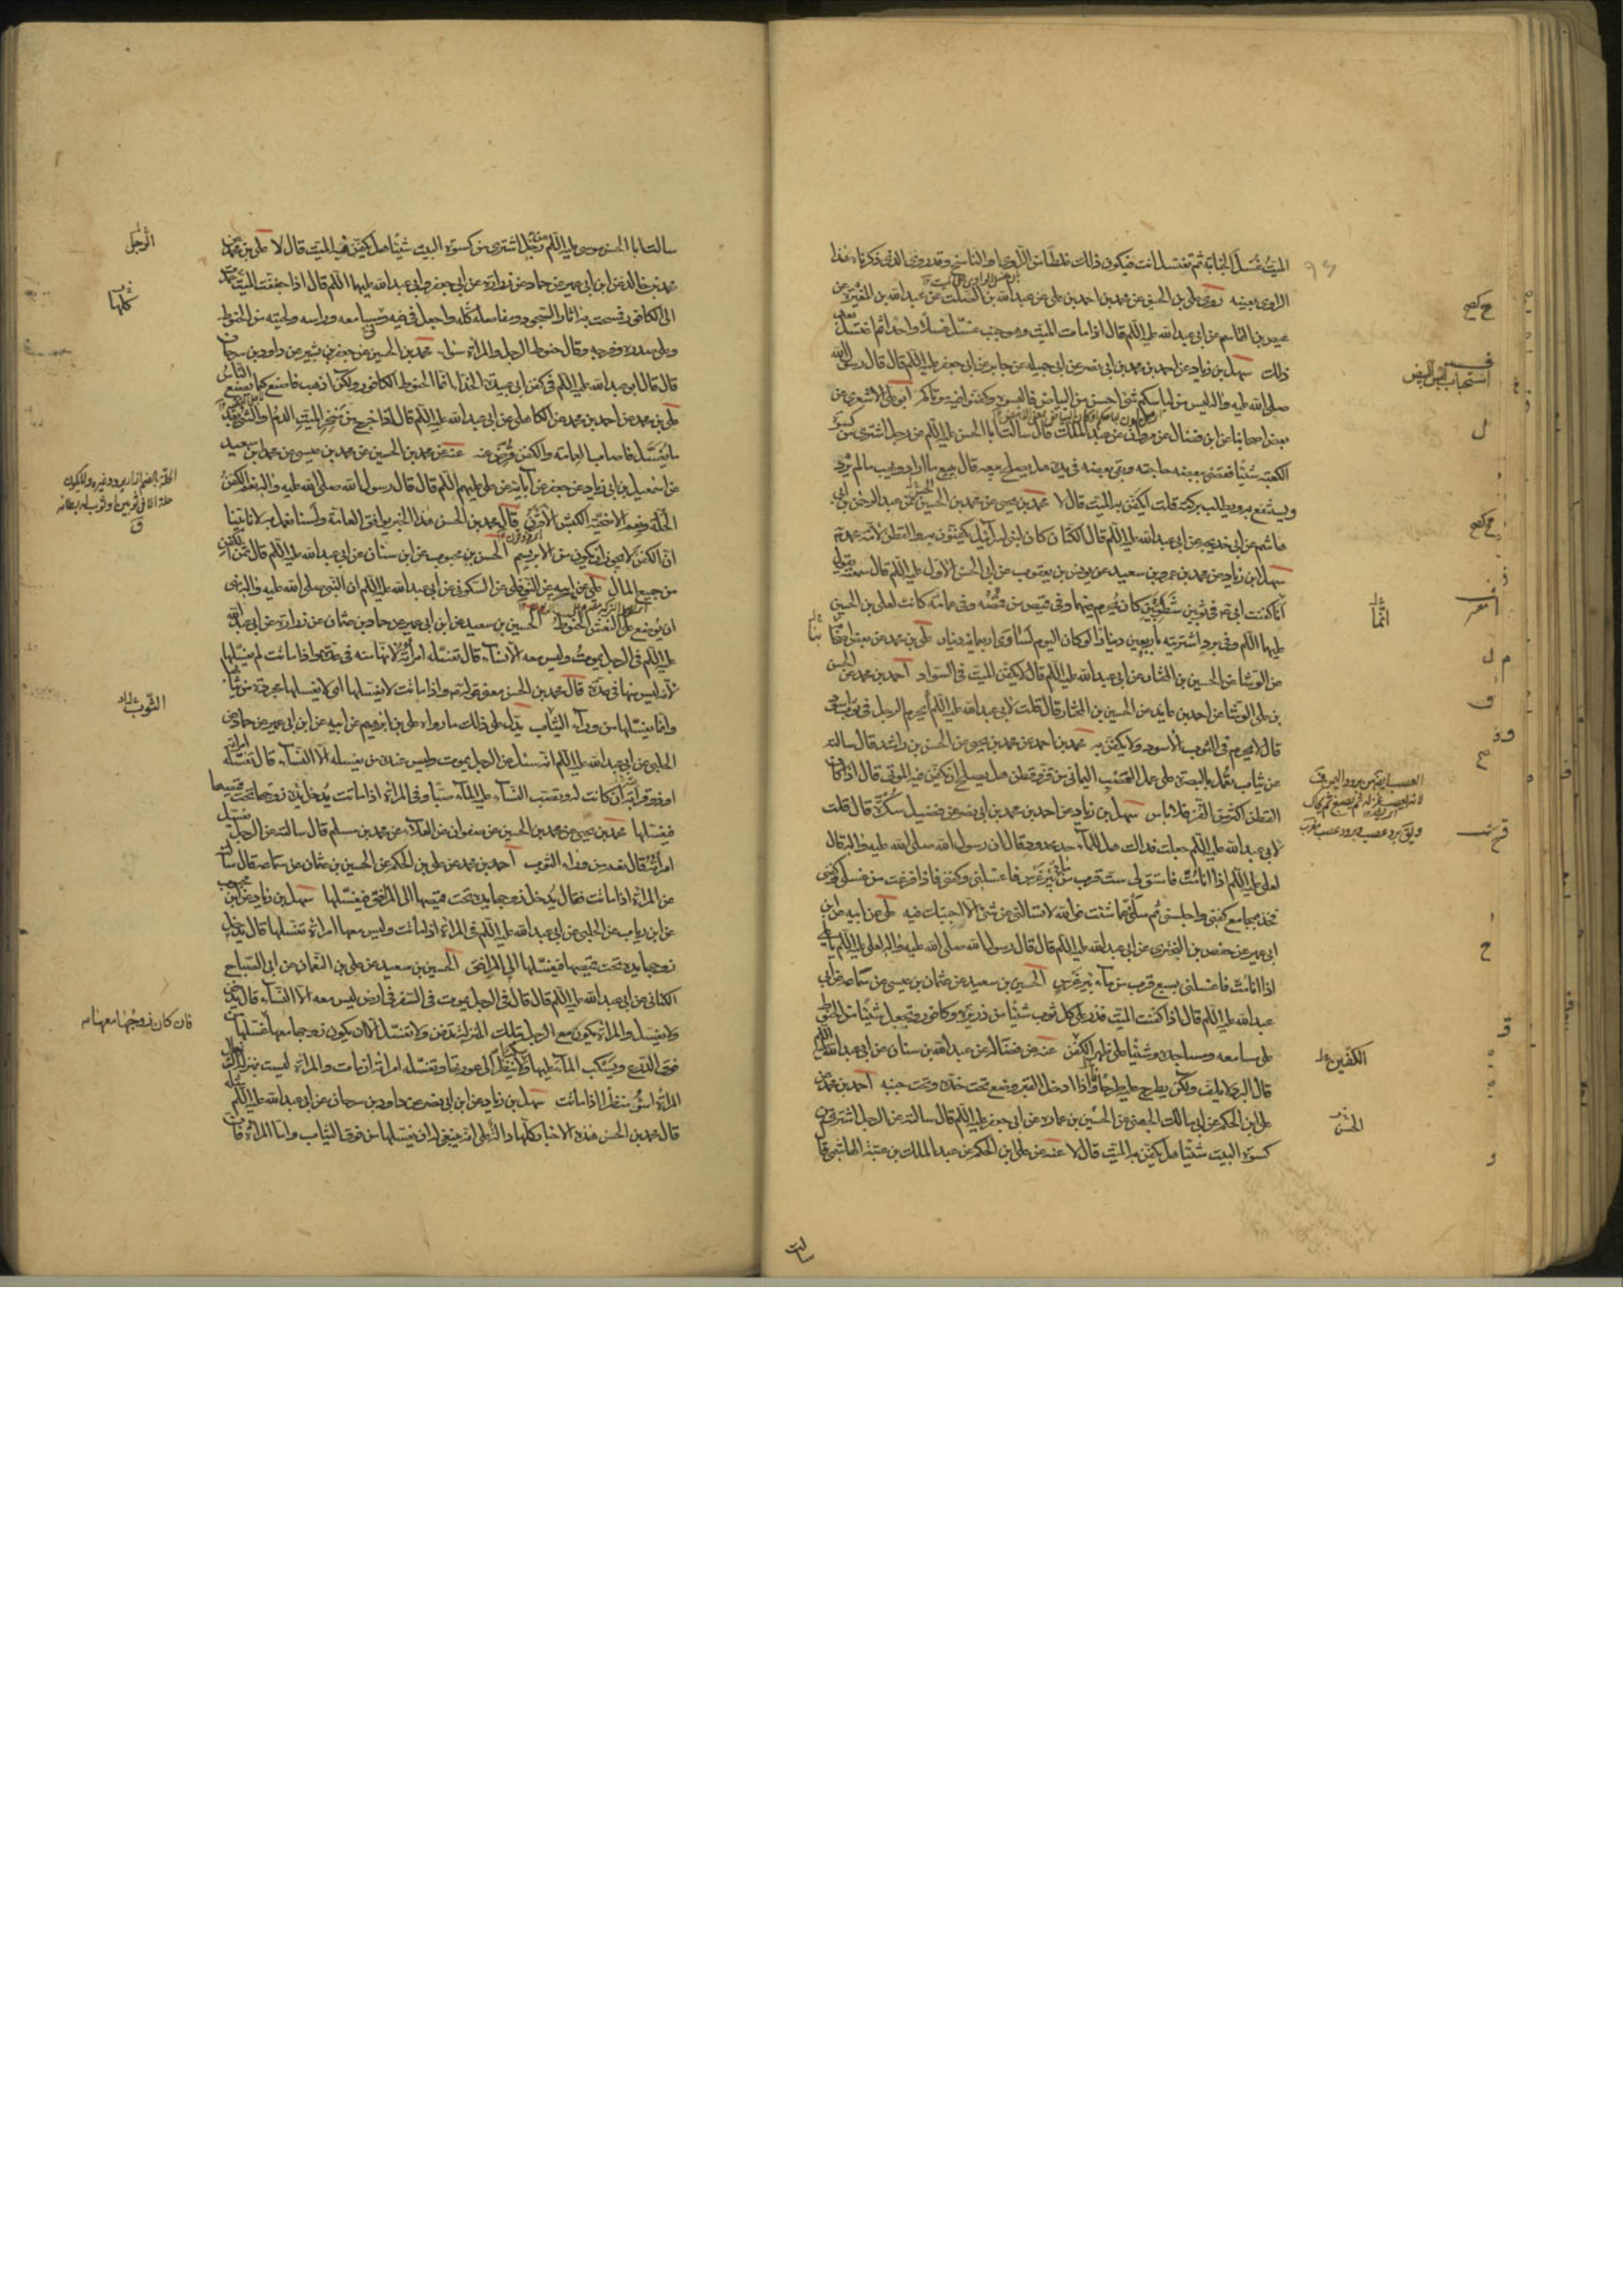 الميت غسل الجنابة ثم تغتسل انت فيكون ذلك غلطا من الراوى او الناسخ وقد روى الذى ذكرناه هذا
الراوى بعينه روى على بن الحسن عن محمد بن احمد بن على عن عبدالله بن الصلت عن عبدالله بن المغيرة عن
عيص بن القاسم عن ابى عبدالله عليه السلم قال اذا مات الميت وهو جنب غسل غسلا واحدا ثم اغتسل بعد
ذلك سهل بن زياد عن احمد بن محمد بن ابى نصر عن ابى جميلة عن جابر عن ابى جعفر عليه السلم قال قال رسول الله
صلى الله عليه واله ليس من لباسكم شئ احسن من البياض فالبسوه وكفنوا فيه موتاكم ابو على الاشعرى عن
بعض اصحابنا عن ابن فضال عن مروان عن عبد الملك قال سالت ابا الحسن عليه السلم عن رجل اشترى من كسوة
الكعبة شيئا فقضى ببعضه حاجته وبقى بعضه فى يده هل يصلح بيعه قال يبيع ما اراد ويهب مالم يرد
ويستنفع به ويطلب بركته قلت ايكفن به الميت قال لا محمد بن يحيى عن محمد بن الحسين عن عبد الرحمن بن ابى
هاشم عن ابى خديجة عن ابى عبدالله عليه السلم قال الكتان كان لبنى اسرائيل يكفنون به والقطن لامة محمد
سهل بن زياد عن محمد بن عمرو بن سعيد عن يونس بن يعقوب عن ابى الحسن الاول عليه السلم قال سمعته يقول
انا كفنت ابى فى ثوبين شطويين كان يحرم فيهما وفى قميص من قمصه وفى عمامة كانت لعلى بن الحسين
عليهما السلم وفى برد اشتريته باربعين دينارا لو كان اليوم لساوى اربعمائة دينار على بن محمد عن بعض اصحابنا
عن الوشا عن الحسين بن المختار عن ابى عبدالله عليه السلم قال لا يكفن الميت فى السواد احمد بن محمد عن الحسن
بن على الوشا عن احمد بن عايذ عن الحسين بن المختار قال قلت لابى عبدالله عليه السلم أيحرم الرجل فى ثوب اسود
قال لا يحرم فى الثوب الاسود ولا يكفن به محمد بن احمد عن محمد بن عيسى عن الحسن بن راشد قال سالته
عن ثياب تعمل بالبصرة على عمل العصب اليمانى من قز وقطن هل يصلح ان يكفن فيها الموتى قال اذا كان
القطن اكثر من القز فلا باس سهل بن زياد عن احمد بن محمد بن ابى نصر عن فضيل سكرة قال قلت
لابى عبدالله عليه السلم جعلت فداك هل للماء حد محدود قال ان رسول الله صلى الله عليه واله قال
لعلى عليه السلم اذا انا مت فاستق لى ست قرب من ماء بئر غرس فاغسلنى وكفنى فاذا فرغت من غسلى وكفنى
فخذ بمجامع كفنى واجلسنى ثم سلنى عما شئت فوالله لا تسالنى عن شئ الا اجبتك فيه على عن ابيه عن ابن
ابى عمير عن حفص بن البخترى عن ابى عبدالله عليه السلم قال قال رسول الله صلى الله عليه واله لعلى عليه السلم يا على
اذا انا مت فاغسلنى بسبع قرب من ماء بئر غرس الحسين بن سعيد عن عثمان بن عيسى عن سماعة عن ابى
عبدالله عليه السلم قال اذا كفنت الميت فذر على كل ثوب شيئا من ذريرة وكافور وتجعل شيئا من الحنوط
على مسامعه ومساجده وشيئا على ظهر الكفن عنه عن فضالة عن عبدالله بن سنان عن ابى عبدالله عليه السلم
قال البرد لا يلف ولكن يطرح عليه طرحا واذا ادخل القبر وضع تحت خده وتحت جنبه احمد بن محمد عن
على بن الحكم عن ابى مالك الجهنى عن الحسين بن عمارة عن ابى جعفر عليه السلم قال سالته عن الرجل اشترى من
كسوة البيت شيئا هل يكفن به الميت قال لا عنه عن على بن الحكم عن عبد الملك بن عتبة الهاشمى قال
استحباب البيض
انما
الكفين
الحسن
سالت
سالت ابا الحسن موسى عليه السلم عن رجل اشترى من كسوة البيت شيئا هل يكفن فيه الميت قال لا على بن محمد
محمد بن خالد عن ابن ابى عمير عن حماد عن زرارة عن ابى جعفر وابى عبدالله عليهما السلم قال اذا جففت الميت عمدت
الى الكافور فمسحت به اثار السجود ومفاصله كله واجعل فى فيه ومسامعه وراسه ولحيته من الحنوط
وعلى صدره وفرجه وقال حنوط الرجل والمراة سواء محمد بن الحسين عن جعفر بن بشير عن داود بن سرحان
قال قال ابو عبدالله عليه السلم فى كفن ابى عبيدة الحذا انما الحنوط الكافور ولكن اذهب فاصنع كما يصنع الناس
على بن محمد عن احمد بن محمد عن الكاهلى عن ابى عبدالله عليه السلم قال اذا خرج من منخر الميت الدم او الشئ بعد
ما يغسل فاصاب العمامة والكفن قرض عنه عنه عن محمد بن الحسين عن محمد بن عيسى عن محمد بن سعيد
عن اسمعيل بن ابى زياد عن جعفر عن ابائه عن على عليهم السلم قال قال رسول الله صلى الله عليه واله نعم الكفن
الحلة ونعم الاضحية الكبش الاقرن قال محمد بن الحسن هذا الخبر يوافق العامة ولسنا نعمل به لانا بينا
ان الكفن لا يجوز ان يكون من الابريسم الحسن بن محبوب عن ابن سنان عن ابى عبدالله عليه السلم قال ثمن الكفن
من جميع المال على عن ابيه عن النوفلى عن السكونى عن ابى عبدالله عليه السلم ان النبى صلى الله عليه واله نهى
ان يوضع على النعش الحنوط الحسين بن سعيد عن ابن ابى عمير عن حماد بن عثمان عن زرارة عن ابى عبدالله
عليه السلم فى الرجل يموت وليس معه الا نساء قال تغسله امراته لانها منه فى عدة واذا ماتت لم يغسلها
لانه ليس منها فى عدة قال محمد بن الحسن معنى قوله واذا ماتت لا يغسلها اى لا يغسلها مجردة من ثيابها
وانما يغسلها من وراء الثياب يدل على ذلك ما رواه على بن ابرهيم عن ابيه عن ابن ابى عمير عن حماد عن
الحلبى عن ابى عبدالله عليه السلم انه سئل عن الرجل يموت وليس عنده من يغسله الا النساء قال تغسله امراته
او ذو قرابته ان كانت له وتصب النساء عليه الماء صبا وفى المراة اذا ماتت يدخل زوجها يده تحت قميصها
فيغسلها محمد بن يحيى عن محمد بن الحسين عن صفوان عن العلاء عن محمد بن مسلم قال سالته عن الرجل يغسل
امراته قال نعم من وراء الثوب احمد بن محمد عن على بن الحكم عن الحسين بن عثمان عن سماعة قال سالته
عن المراة اذا ماتت فقال يدخل زوجها يده تحت قميصها الى المرافق فيغسلها سهل بن زياد عن ابن محبوب
عن ابن رياب عن الحلبى عن ابى عبدالله عليه السلم فى المراة اذا ماتت وليس معها امراة تغسلها قال يدخل
زوجها يده تحت قميصها فيغسلها الى المرافق الحسين بن سعيد عن على بن النعمان عن ابى الصباح
الكنانى عن ابى عبدالله عليه السلم قال قال فى الرجل يموت فى السفر فى ارض ليس معه الا النساء قال يدفن
ولا يغسل والمراة تكون مع الرجل بتلك المنزلة تدفن ولا تغسل الا ان يكون زوجها معها غسلها من
فوق الدرع ويسكب الماء عليها سكبا ولا ينظر الى عورتها وتغسله امراته ان مات والمراة ليست بمنزلة الرجل
المراة اسوء منظرا اذا ماتت سهل بن زياد عن ابن ابى نصر عن داود بن سرحان عن ابى عبدالله عليه السلم
قال محمد بن الحسن هذه الاخبار كلها دالة على انه ينبغى له ان يغسلها من فوق الثياب واما المراة فان
الرجل
كلها
الثوب
فان كان زوجها معها